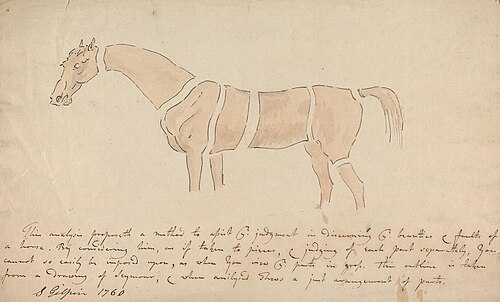 This analysis proposeth a method to assist ye judgment in discovering ye beauties & faults of
a horse. By considering him, as if taken to pieces, & judging of each part separately, you
cannot so easily be imposed upon, as when you view ye parts in gross. This outline is taken
from a drawing of Seymour, & when analysed shews a just arrangement of parts.
S Gilpin 1760